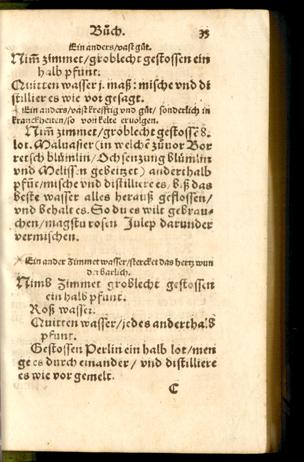 Büch. 35
Ein anders/vast gůt.
Nim̃ zimmet/groblecht gestossen ein
halb pfunt.
Quitten wasser j. maß: mische vnd di
stillier es wie vor gesagt.
Ein anders/vast kreffтig vnd gůt/ sonderlich in
kranckheiten/so von kelte ervolgen.
Nim̃ zimmet/groblecht gestossẽ 8.
lot. Maluasier (in welchẽ zůuor Bor
retsch blümlin/Ochsenzung blümlin
vnd Meliss:n gebeitzet) anderthalb
pfũt/mische vnd distilliere es/ biß das
beste wasser alles herauß geflossen/
vnd behalt es. So du es wilt gebrau-
chen/magstu rosen Julep darunder
vermischen.
Ein ander Zimmet wasser/stercket das hertz wun
derbarlich.
Nimb Zimmet groblecht gestossen
ein halb pfunt.
Roß wasser.
Quitten wasser/jedes anderthalb
pfunt.
Gestossen Perlin ein halb lot/men
ge es durch einander/ vnd distilliere
es wie vor gemelt.
C